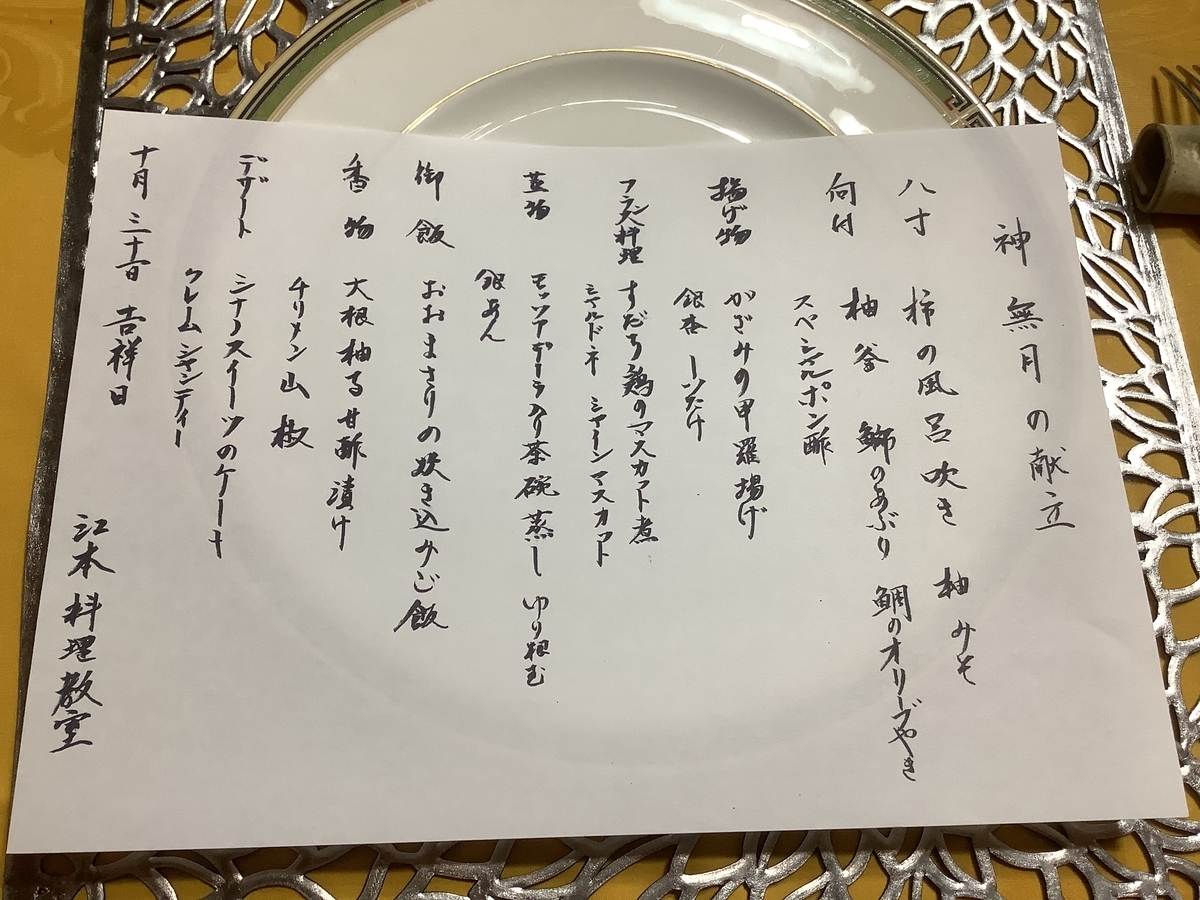 神無月の献立
八寸 柿の風呂吹き 柚みそ
向付 柚釜 鰤のあぶり 鯛のオリーブやき
スペシャルポン酢
揚げ物 かざみの甲羅揚げ
銀杏 しいたけ
フランス料理 すだち鶏のマスカット煮
シャルドネ シャインマスカット
蒸物 モッツアデーラ入り茶碗蒸し ゆり根
銀あん
御飯 おおまさりの炊き込みご飯
香物 大根柚子甘酢漬け
チリメン山椒
デザート シナノスイーツのケーキ
クレーム シャンティー
十月三十日 吉祥日 江本料理教室